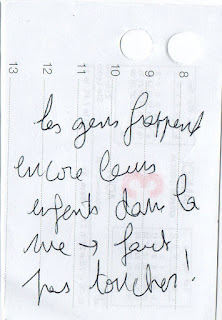 8
9
10
11
12
13
les gens frappent
encore leurs
enfents dans la
rue → faut
pas toucher!